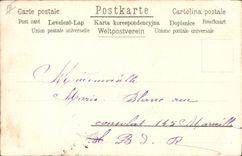 Carte postale Postkarte Cartolina postale
Post card Levelező-Lap Karta korespondencyjna Dopisnice Brefkaart
Union postale universelle Weltpostverein Union postale universelle
Mademoiselle
Marie Blanc rue
consolat 145 Marseille
B d R